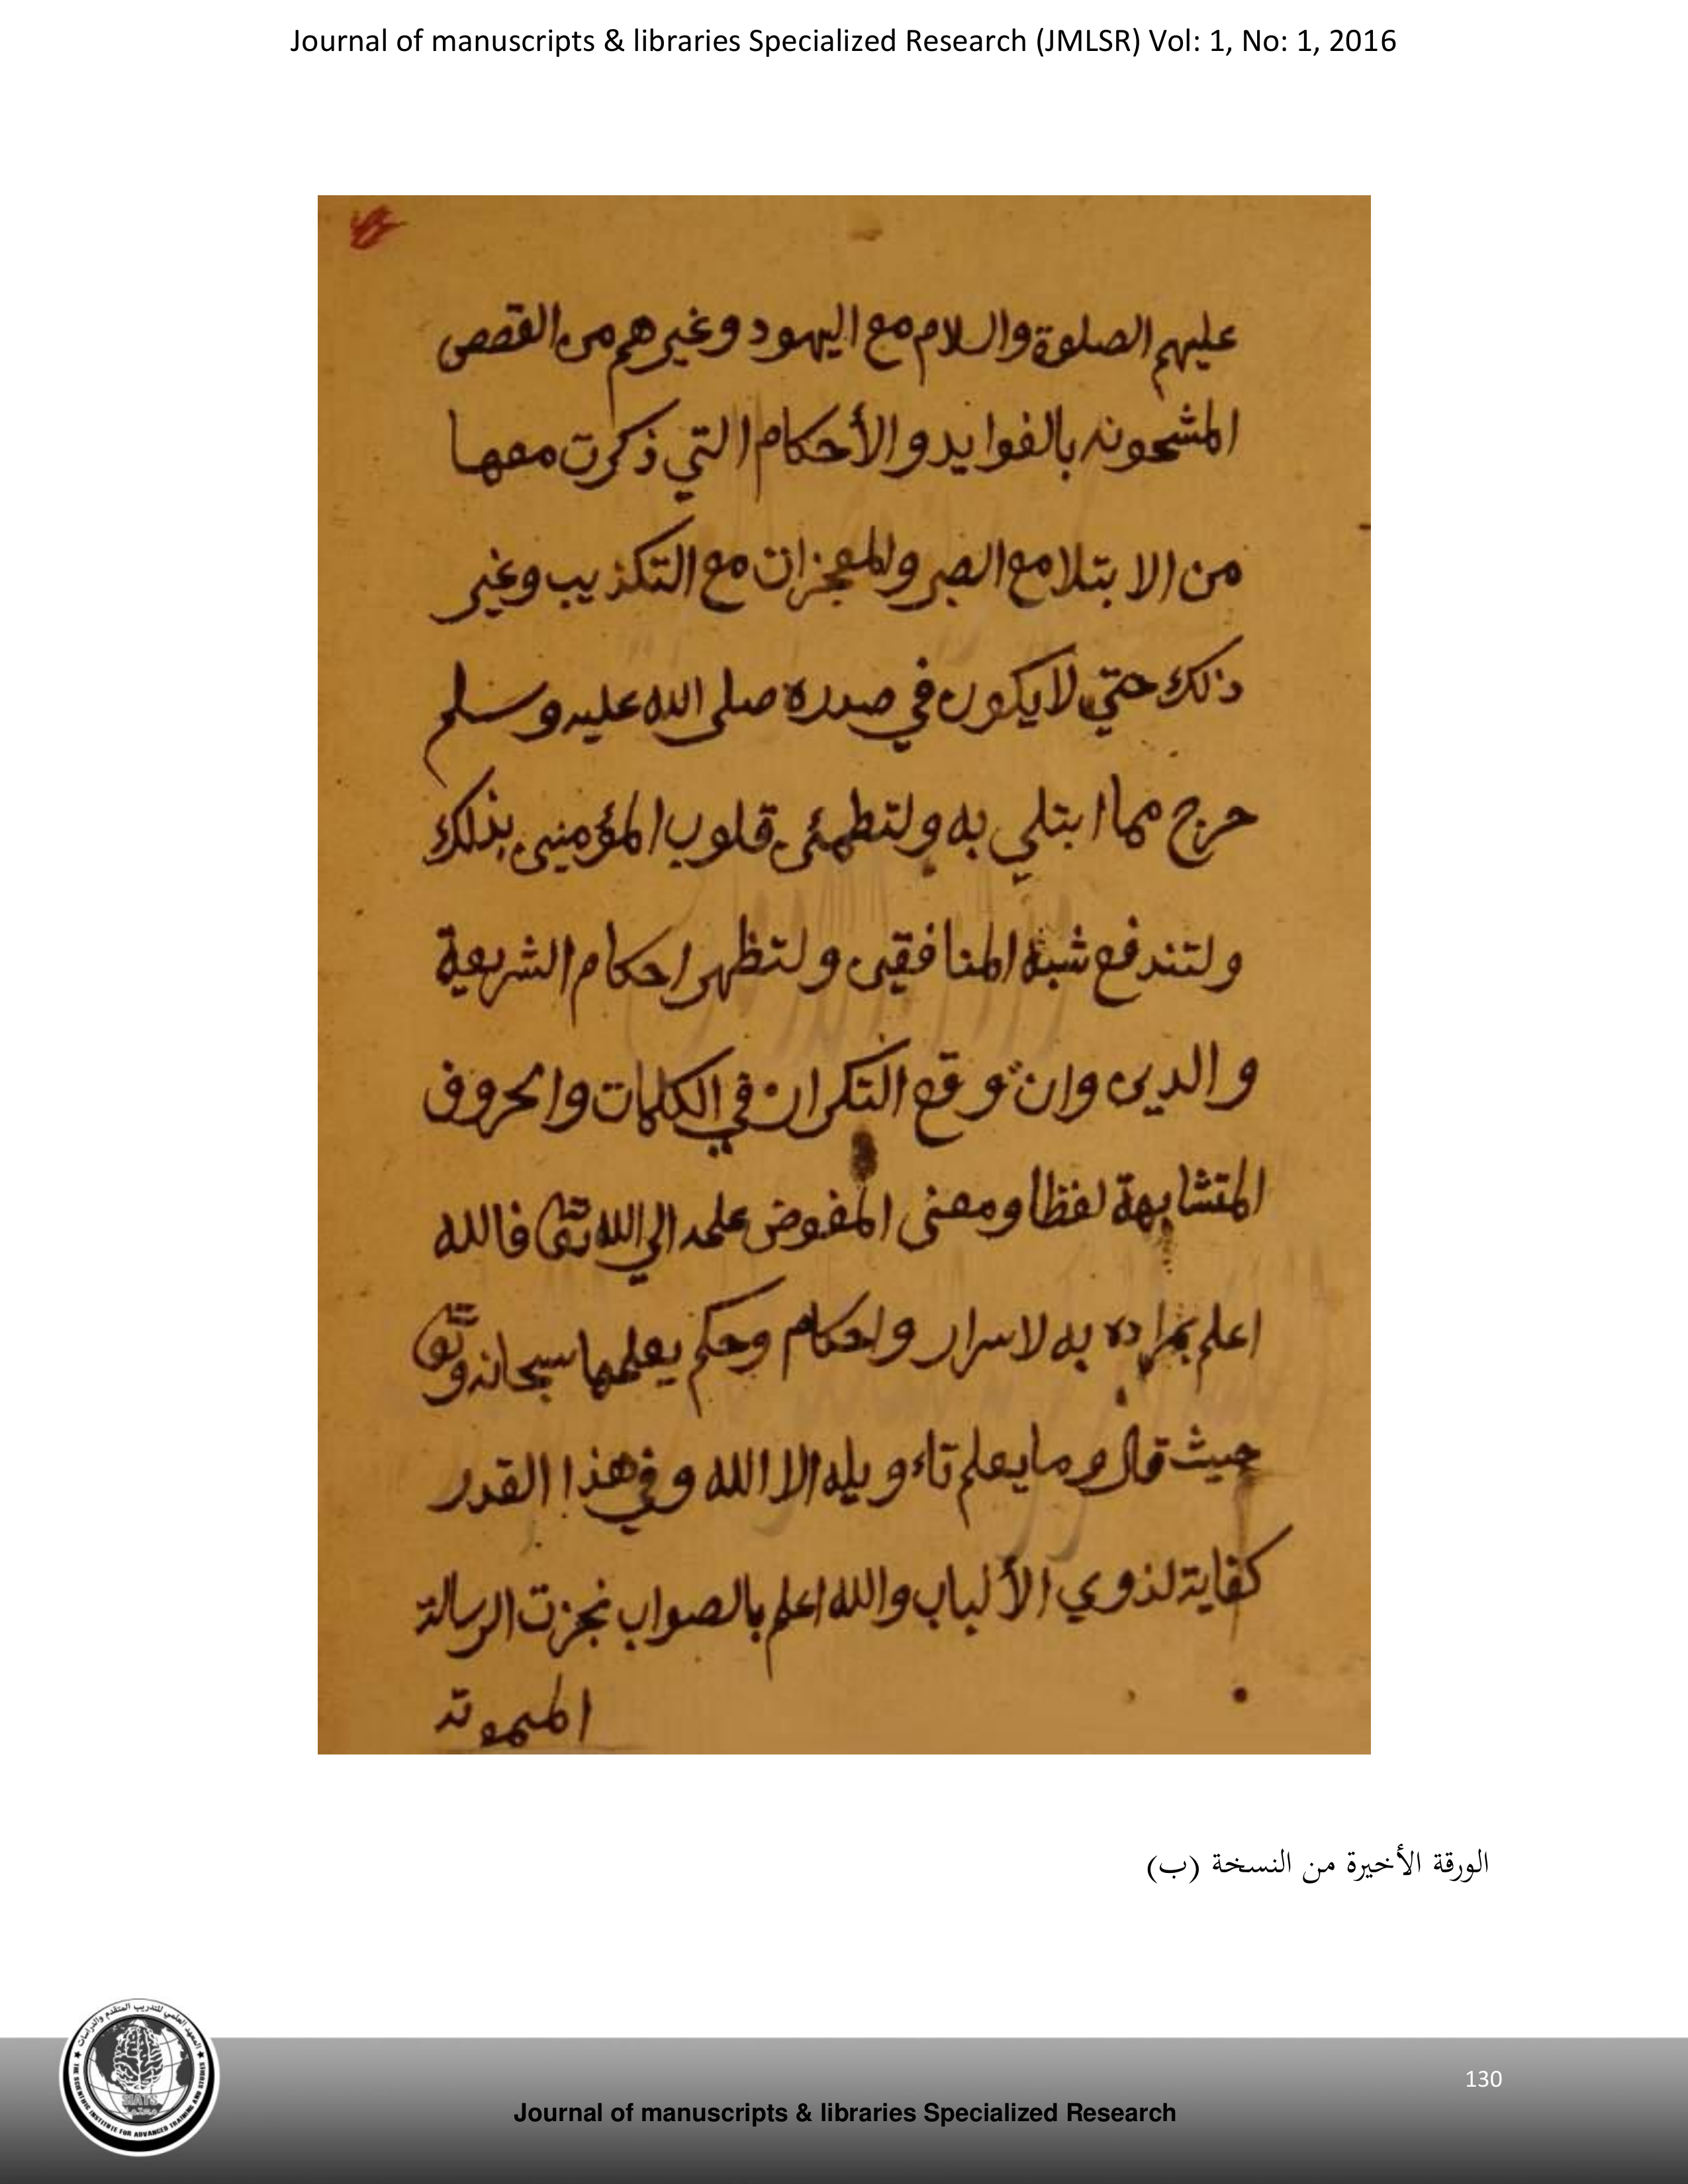 Journal of manuscripts & libraries Specialized Research (JMLSR) Vol: 1, No: 1, 2016
عليهم الصلوة والسلام مع اليهود وغيرهم من القصص
المشحونه بالفوايد والأحكام التي ذكرت معها
من الابتلا مع الصبر والمعجزات مع التكذيب وغير
ذلك حتي لا يكون في صدره صلى الله عليه وسلم
حرج مما ابتلي به ولتطمئن قلوب المؤمنين بذلك
ولتندفع شبه المنافقين ولتظهر احكام الشريعة
والدين وان توقع التكران في الكلمات والحروف
المتشابهة لفظا ومعنى المفوض علمه الي الله تعالى فالله
اعلم بمراده به لاسرار واحكام وحكم يعلمها سبحانه وتعالى
حيث قال وما يعلم تاءويله الا الله وفي هذا القدر
كفاية لذوي الألباب والله اعلم بالصواب نجزت الرسالة
الورقة الأخيرة من النسخة (ب)
المعهد العلمي للتدريب المتقدم والدراسات
THE SCIENTIFIC INSTITUTE FOR ADVANCED TRAINING AND STUDIES
SIATS
130
Journal of manuscripts & libraries Specialized Research